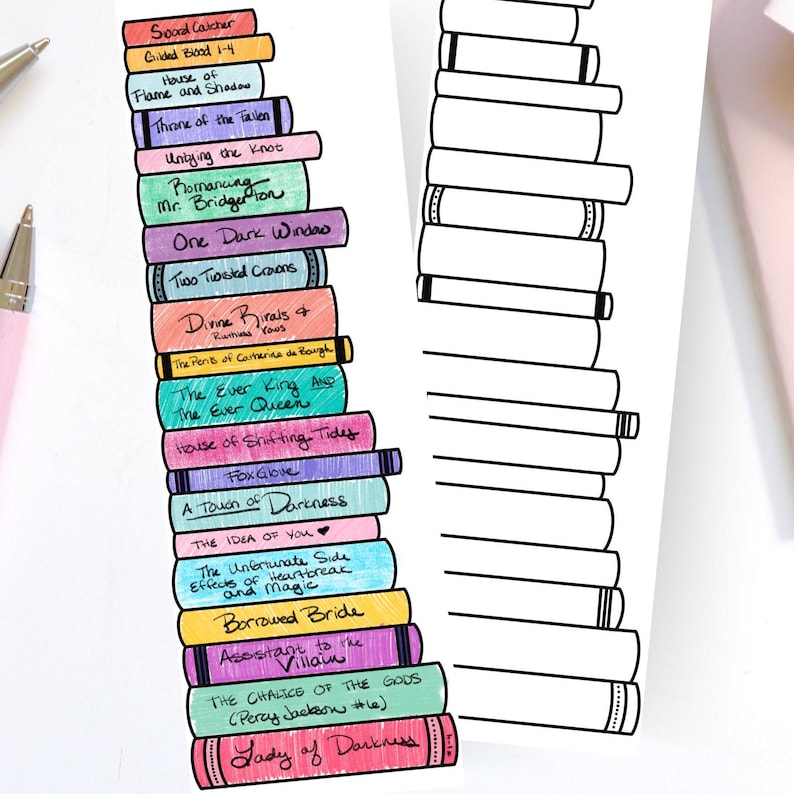 Sword Catcher
Gilded Blood 1-4
House of
Flame and Shadow
Throne of the Fallen
Untying the Knot
Romancing
Mr. Bridgerton
One Dark Window
Two Twisted Crowns
Divine Rivals &
Ruthless Vows
The Perils of Catherine de Bourgh
The Ever King AND
The Ever Queen
House of Shifting Tides
FoxGlove
A Touch of Darkness
THE IDEA OF YOU ♥
The Unfortunate Side
Effects of Heartbreak
and Magic
Borrowed Bride
Assistant to the
Villain
THE CHALICE OF THE GODS
(Percy Jackson #6)
Lady of Darkness